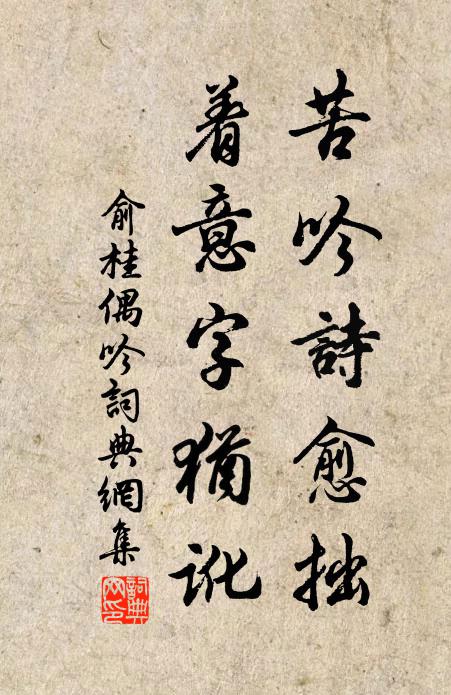 苦吟詩愈拙
着意字猶訛
俞桂偶吟詞典網集
詞典网印